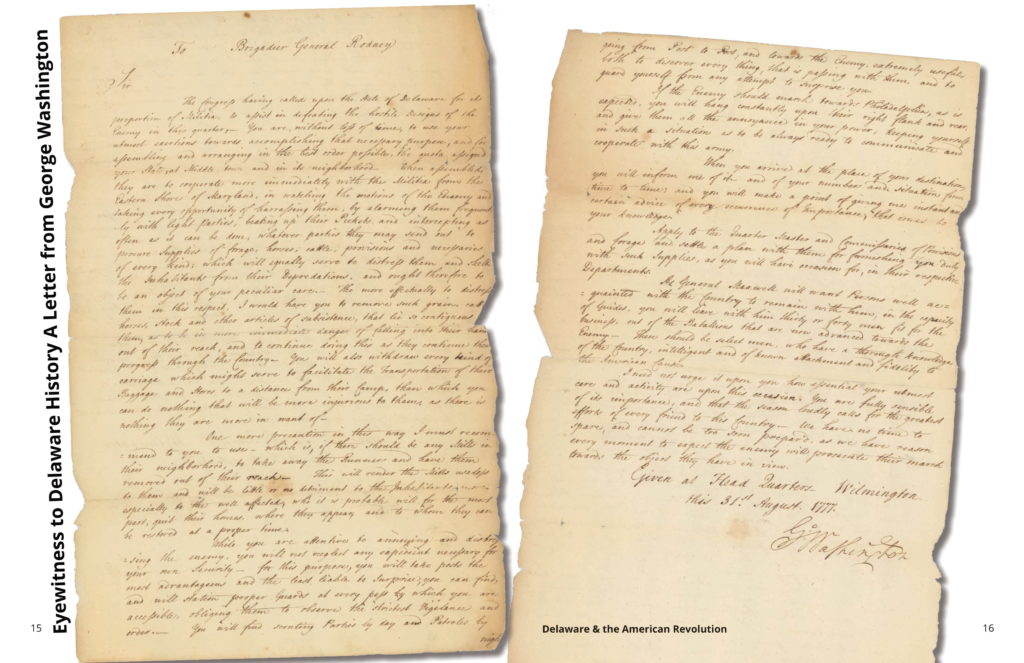 Eyewitness to Delaware History A Letter from George Washington
To Brigadier General Rodney
Sir
The Congress having called upon the State of Delaware for its
proportion of Militia, to assist in defeating the hostile designs of the
Enemy in this quarter, You are, without loss of time, to use your
utmost exertions towards accomplishing that necessary purpose, and for
assembling and arranging in the best order possible, the quota assigned
your State, at Middle town and in its neighborhood. When assembled,
they are to cooperate more immediately with the Militia from the
Eastern Shore of Maryland, in watching the motions of the Enemy and
taking every opportunity of harrassing them, by alarming them frequent
ly with light Parties, beating up their Pickets, and intercepting as
often as it can be done, whatever parties they may send out to
procure Supplies of forage, horses, cattle, provisions and necessaries
of every kind; which will equally serve to distress them and shelter
the Inhabitants from their Depredations, and ought therefore to
be an object of your peculiar care. The more effectually to distress
them in this respect, I would have you to remove such grain, cattle
horses, Stock and other articles of subsistance, that lie so contiguous
them, as to be in more immediate danger of falling into their hands
out of their reach, and to continue doing this as they continue their
progress through the Country. You will also withdraw every kind of
carriage which might serve to facilitate the Transportation of their
Baggage and Stores to a distance from their Camp, than which you
can do nothing that will be more injurious to them, as there is
nothing they are more in want of—
One more precaution in this way I must recom
=mend to you to use— which is, if there should be any Mills in
their neighborhood, to take away the Runners and have them
removed out of their reach— This will render the Mills useless
to them and will be little or no detriment to the Inhabitants
especially to the well affected, who it is probable will for the most
part, quit their houses where they appear, and to whom they can
be restored at a proper time.
While you are attentive to annoying and distres
=sing the enemy, you will not neglect any expedient necessary for
your own Security— for this purpose, you will take posts the
most advantageous and the least liable to Surprise, you can find,
and will station proper Guards at every pass by which you are
accessible, obliging them to observe the strictest Vigilance and
order.— You will find scouting Parties by day and Patroles by
nigh
15
going from Post to Post, and towards the Enemy, extremely useful
both to discover every thing, that is passing with them, and to
guard yourself from any attempt to surprise you.
If the Enemy should march towards Philadelphia, as is
expected, you will hang constantly upon their right flank and rear,
and give them all the annoyance in your power, keeping yourself
in such a situation as to be always ready to communicate and
cooperate with this army.
When you arrive at the place of your destination,
you will inform me of it and of your number and situation from
time to time; and you will make a point of giving me instant and
certain advice of every occurrence of Importance, that comes to
your knowledge.
Apply to the Quarter Master and Commissaries of Provisions
and forage and settle a plan with them for furnishing you duly
with such Supplies, as you will have occasion for, in their respective
Departments.
As General Maxwell will want Persons well ac=
=quainted with the Country to remain with him, in the capacity
of Guides, you will leave with him thirty or forty men fit for the
business, out of the Batalions that are now advanced towards the
Enemy. These should be select men, who have a thorough knowledge
of the Country, intelligent and of known attachment and fidelity to
the American Cause.
I need not urge it upon you how essential your utmost
care and activity are upon this occasion. You are fully sensible
of its importance, and that the season loudly calls for the greatest
efforts of every friend to this Country— We have no time to
spare, and cannot be too soon prepar'd, as we have reason
every moment to expect the enemy will prosecute their march
towards the object they have in view.
Given at Head Quarters Wilmington
this 31st August. 1777.
Go: Washington
Delaware & the American Revolution
16